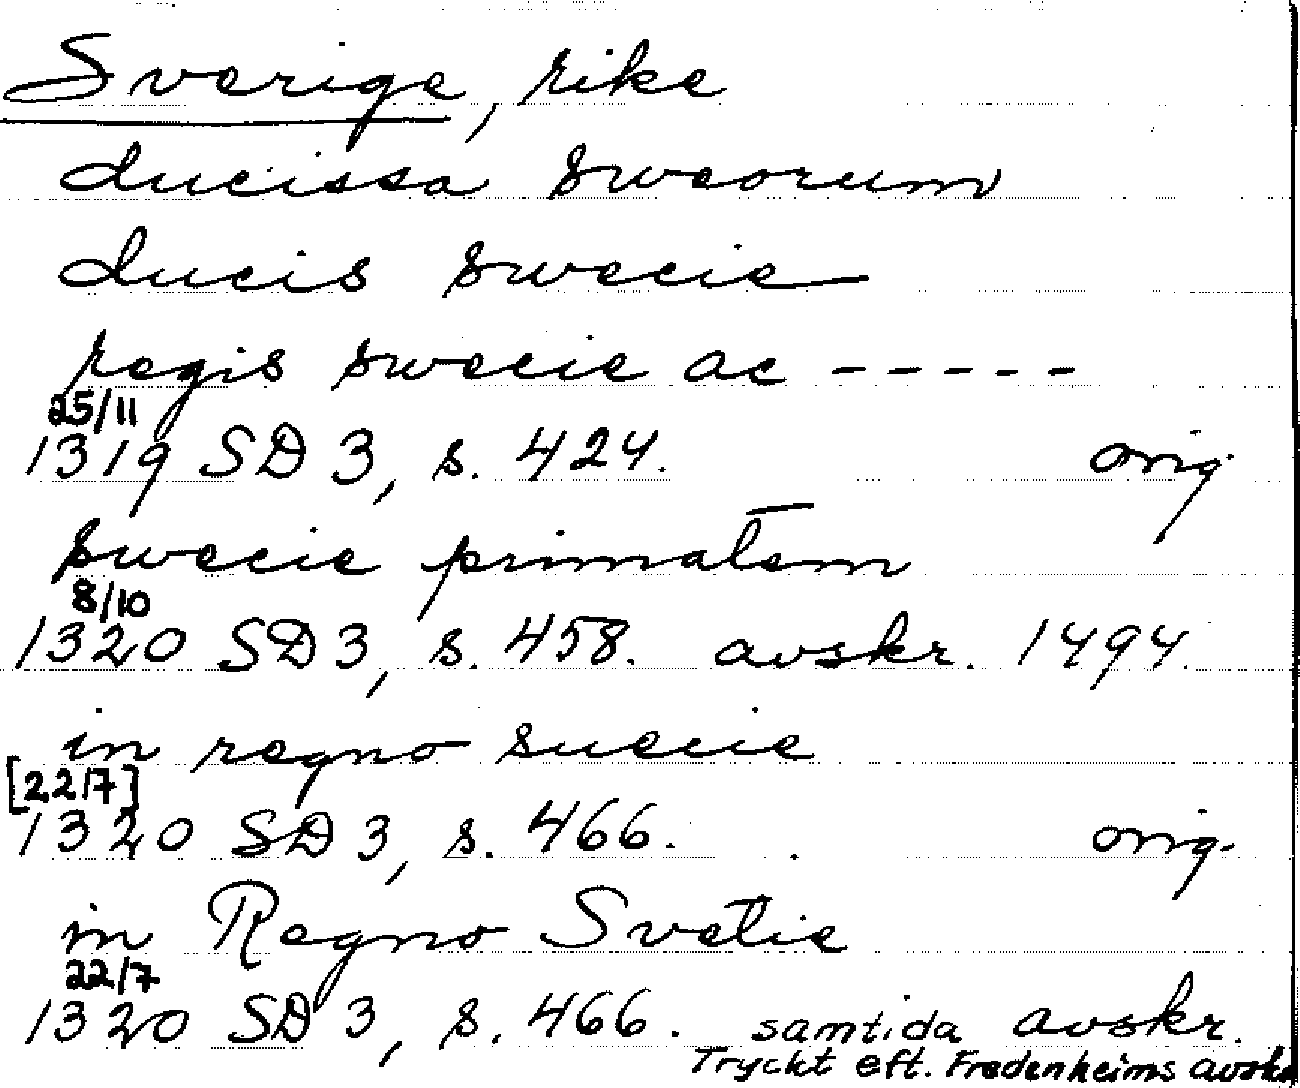 Sverige, rike
ducissa sweorum
ducis swecie
regis swecie ac - - - - -
25/11
1319 SD 3, s. 424. orig
swecie primatem
8/10
1320 SD 3, s. 458. avskr. 1494.
in regno suecie
[22/7]
1320 SD 3, s. 466. orig.
in Regno Svetie
22/7
1320 SD 3, s. 466. samtida avskr.
Tryckt eft. Fredenheims avskr